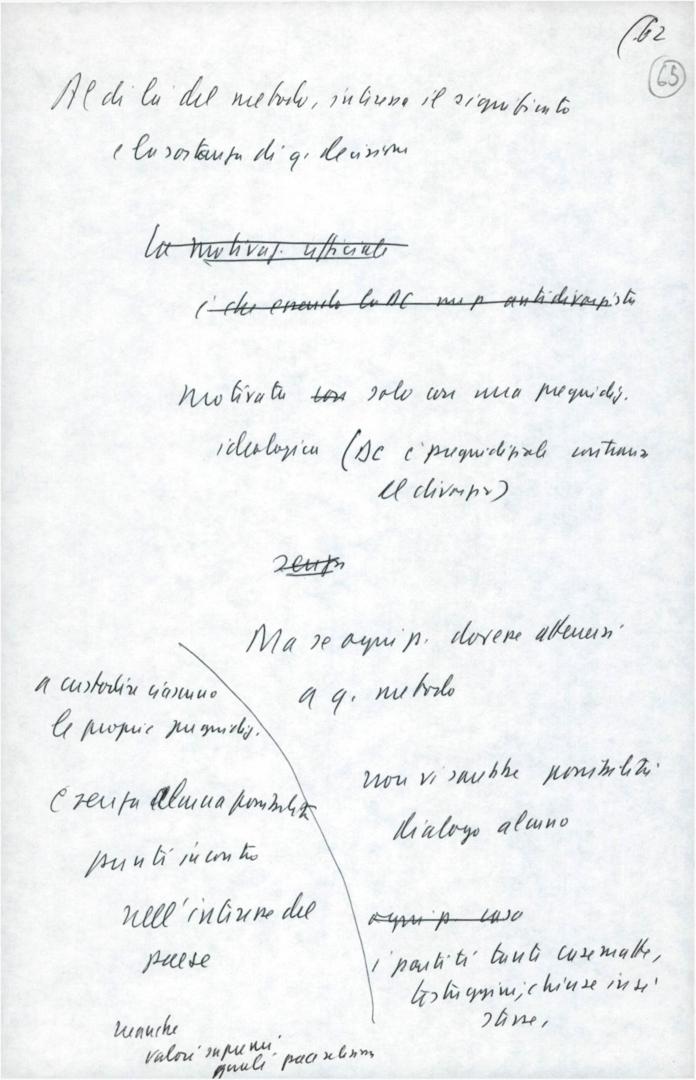 62
65
Al di là del metodo, interessa il significato
e la sostanza di q. decisione
La motivaz. ufficiale
è che essendo la DC un p. antidivorzista
motivata con solo con una pregiudiz.
ideologica (DC è pregiudizialm contraria
al divorzio)
senza
Ma se ogni p. dovesse attenersi
a q. metodo
a custodire ciascuno
le proprie pregiudiz.
non vi sarebbe possibilità
dialogo alcuno
e senza alcuna possibilità
punti incontro
nell'interesse del
paese
ogni p. caso
i partiti tanti casematte,
testuggini, chiuse in sé
stesse,
neanche
valori supremi
quali pace